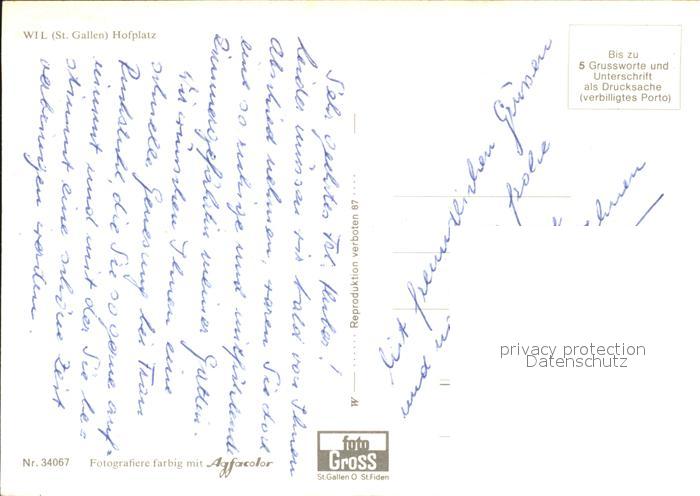 WIL (St. Gallen) Hofplatz
Sehr geehrtes Frl. Huber!
leider müssen wir bald von Ihnen
Abschied nehmen, waren Sie doch
eine so ruhige und mitfühlende
Zimmergefährtin meiner Gattin.
Wir wünschen Ihnen eine
schnelle Genesung bei Frau
die Sie so gerne auf-
nimmt und mit der Sie be-
stimmt eine schöne Zeit
verbringen werden.
Mit freundlichen Grüssen
und
Bis zu
5 Grussworte und
Unterschrift
als Drucksache
(verbilligtes Porto)
Reproduktion verboten 87
privacy protection
Datenschutz
foto
GROSS
St.Gallen O St.Fiden
Nr. 34067 Fotografiere farbig mit Agfacolor